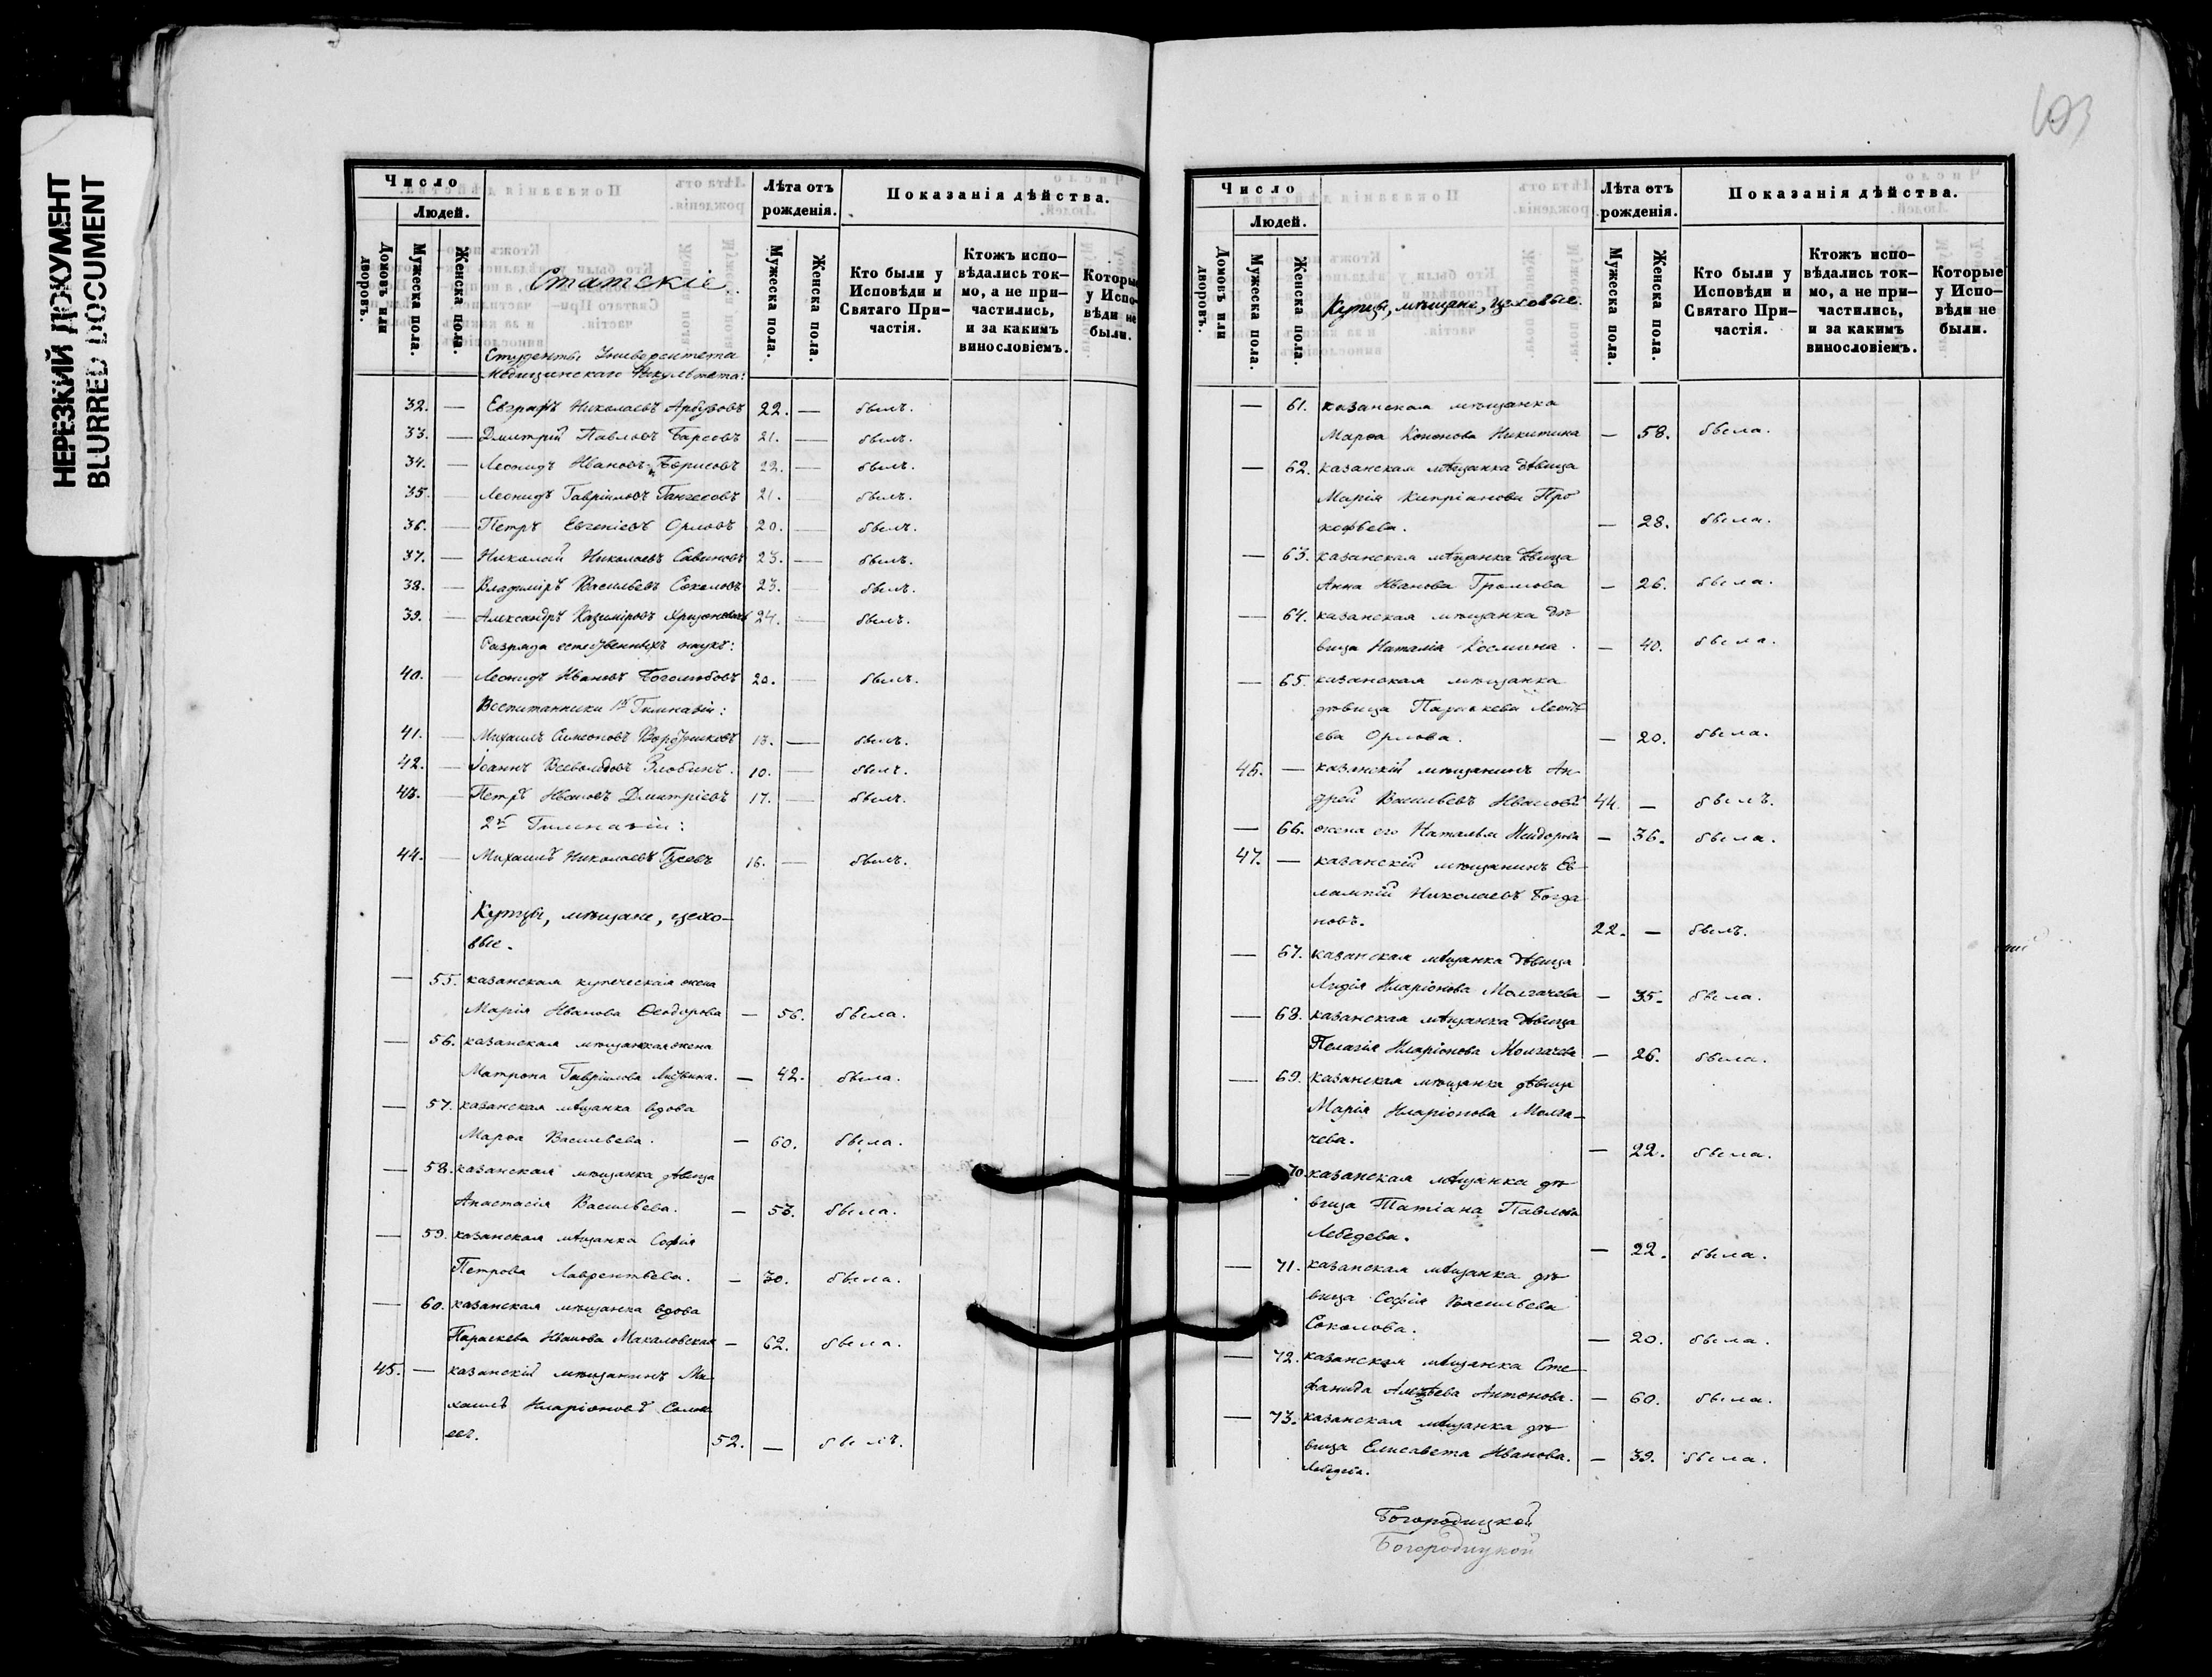 НЕРЕЗКИЙ ДОКУМЕНТ
BLURRED DOCUMENT
Число
Людей.
Домовъ или дворовъ.
Мужеска пола.
Женска пола.
Статскіе.
Лѣта отъ рожденія.
Мужеска пола.
Женска пола.
Показанія дѣйства.
Кто были у Исповѣди и Святаго Причастія.
Ктожъ исповѣдались токмо, а не причастились, и за какимъ винословіемъ.
Которые у Исповѣди не были.
Студенты Университета
Медицинскаго Факультета:
32. — Евграфъ Николаевъ Арбузовъ 22. — былъ.
33. — Дмитрій Павловъ Барсовъ 21. — былъ.
34. — Леонидъ Ивановъ Борисовъ 22. — былъ.
35. — Леонидъ Гавріиловъ 21. — былъ.
36. — Петръ Евгеніевъ Орловъ 20. — былъ.
37. — Николай Николаевъ Савиновъ 23. — былъ.
38. — Владиміръ Васильевъ Соколовъ 23. — былъ.
39. — Александръ Казиміровъ 24. — былъ.
Разряда естественныхъ наукъ:
40. — Леонидъ Ивановъ Боголюбовъ 20. — былъ.
Воспитанники 1й Гимназіи:
41. — Михаилъ Симеоновъ 13. — былъ.
42. — Іоаннъ Всеволодовъ Злобинъ. 10. — былъ.
43. — Петръ Ивановъ Дмитріевъ 17. — былъ.
2й Гимназіи:
44. — Михаилъ Николаевъ Гусевъ 16. — былъ.
Купцы, мѣщане, цехо-
вые.
— 55. казанская купеческая жена
Марія Иванова Ѳеодорова — 56. была.
— 56. казанская мѣщанская жена
Матрона Гавріилова — 42. была.
— 57. казанская мѣщанка вдова
Марѳа Васильева. — 60. была.
— 58. казанская мѣщанка дѣвица
Анастасія Васильева. — 53. была.
— 59. казанская мѣщанка Софія
Петрова Лаврентьева. — 30. была.
— 60. казанская мѣщанка вдова
Параскева Иванова Макаловская — 62. была.
45. — казанскій мѣщанинъ Ми-
хаилъ Иларіоновъ
52. — былъ.
103
Число
Людей.
Домовъ или дворовъ.
Мужеска пола.
Женска пола.
Купцы, мѣщане, цеховые.
Лѣта отъ рожденія.
Мужеска пола.
Женска пола.
Показанія дѣйства.
Кто были у Исповѣди и Святаго Причастія.
Ктожъ исповѣдались токмо, а не причастились, и за какимъ винословіемъ.
Которые у Исповѣди не были.
— 61. казанская мѣщанка
Марѳа Кононова Никитина — 58. была.
— 62. казанская мѣщанка дѣвица
Марія Кипріанова Про
кофьева. — 28. была.
— 63. казанская мѣщанка дѣвица
Анна Иванова Громова — 26. была.
— 64. казанская мѣщанка дѣ
вица Наталія Космина. — 40. была.
— 65. казанская мѣщанка
дѣвица Параскева Леонть
ева Орлова. — 20. была.
46. — казанскій мѣщанинъ Ан-
дрей Васильевъ Ивановъ 44. — былъ.
— 66. жена его Наталья Исидорова — 36. была.
47. — казанскій мѣщанинъ Ев
лампій Николаевъ Богда
новъ. 22. — былъ.
— 67. казанская мѣщанка дѣвица
Лидія Иларіонова Молгачева — 35. была.
— 68. казанская мѣщанка дѣвица
Пелагія Иларіонова Молгачева — 26. была.
— 69. казанская мѣщанка дѣвица
Марія Иларіонова Молга-
чева. — 22. была.
— 70. казанская мѣщанка дѣ
вица Татіана Павлова
Лебедева. — 22. была.
— 71. казанская мѣщанка дѣ
вица Софія Васильева
Соколова. — 20. была.
— 72. казанская мѣщанка Сте
фанида Антонова. — 60. была.
— 73. казанская мѣщанка дѣ
вица Елисавета Иванова — 39. была.
Лебедева.
Богородицкой
Богородицкой